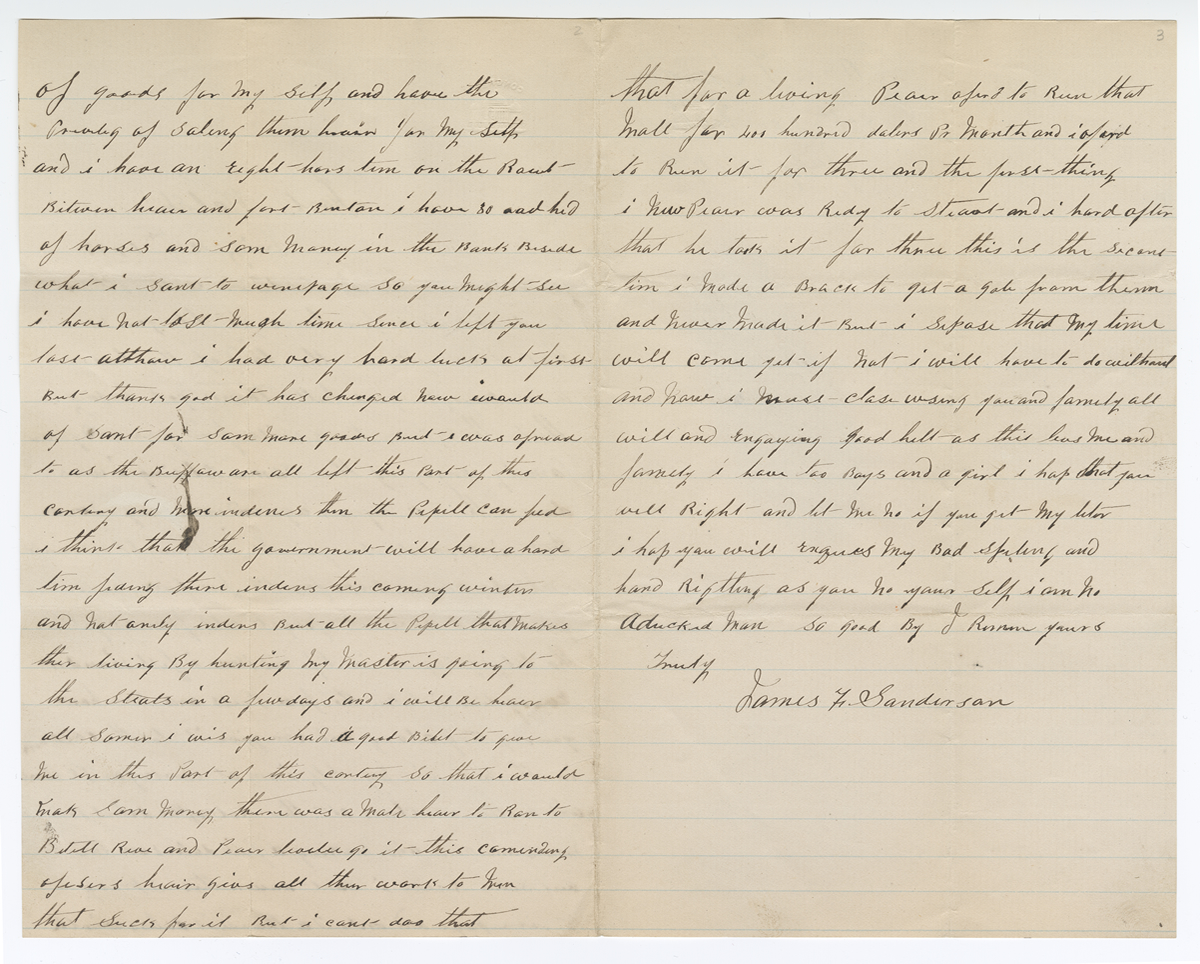 2
of goods for My Self and have the
Preveleg of Saleng them hair for My Self
and i have an Eight hors tem on the Raut
Bitwen heair and fort Bentan i have 30 od hed
of horses and Som Maney in the Bank Beside
what i Sant to winepage So you Might See
i have Nat lost Mugh time Since i left you
last altham i had very hard luck at first
But thank god it has chenged Now i would
of Sant for Sam More goods But i was afread
to as the Buffaw are all left this Part of this
contery and More indenes then the Pepell can fed
i think that the government will have a hard
tim feding there indens this coming winters
and Nat onely indens But all the Pepell that Makes
ther living By hunting My Master is going to
the Steats in a few days and i will Be heair
all Somer i wis you had a good Bibet to give
Me in this Part of this contery So that i would
Mak Som Money there was a Male heair to Ran to
Battell Reve and Peair go it this comending
ofesers heair givs all ther work to Men
that Suck for it But i cant doo that
3
that for a living Peair oferd to Run that
Mall for 400 hundred dalers Pr Month and i oferd
to Run it for three and the first thing
i New Peair was Redy to Steart and i hard after
that he took it for three this is the Secont
tim i Made a Brack to get a gob from them
and Never Made it But i Sepose that My time
will come yet if Not i will have to do without
and Now i Must close wesing you and famely all
will and Engoying good helt as this levs Me and
famely i have too Boys and a girl i hop that you
will Right and let Me No if you get My leter
i hop you will Enques My Bad Speling and
hand Rigtting as you No your Self i am No
aducked Man So good By I Rimen yours
Truly
James F. Sanderson